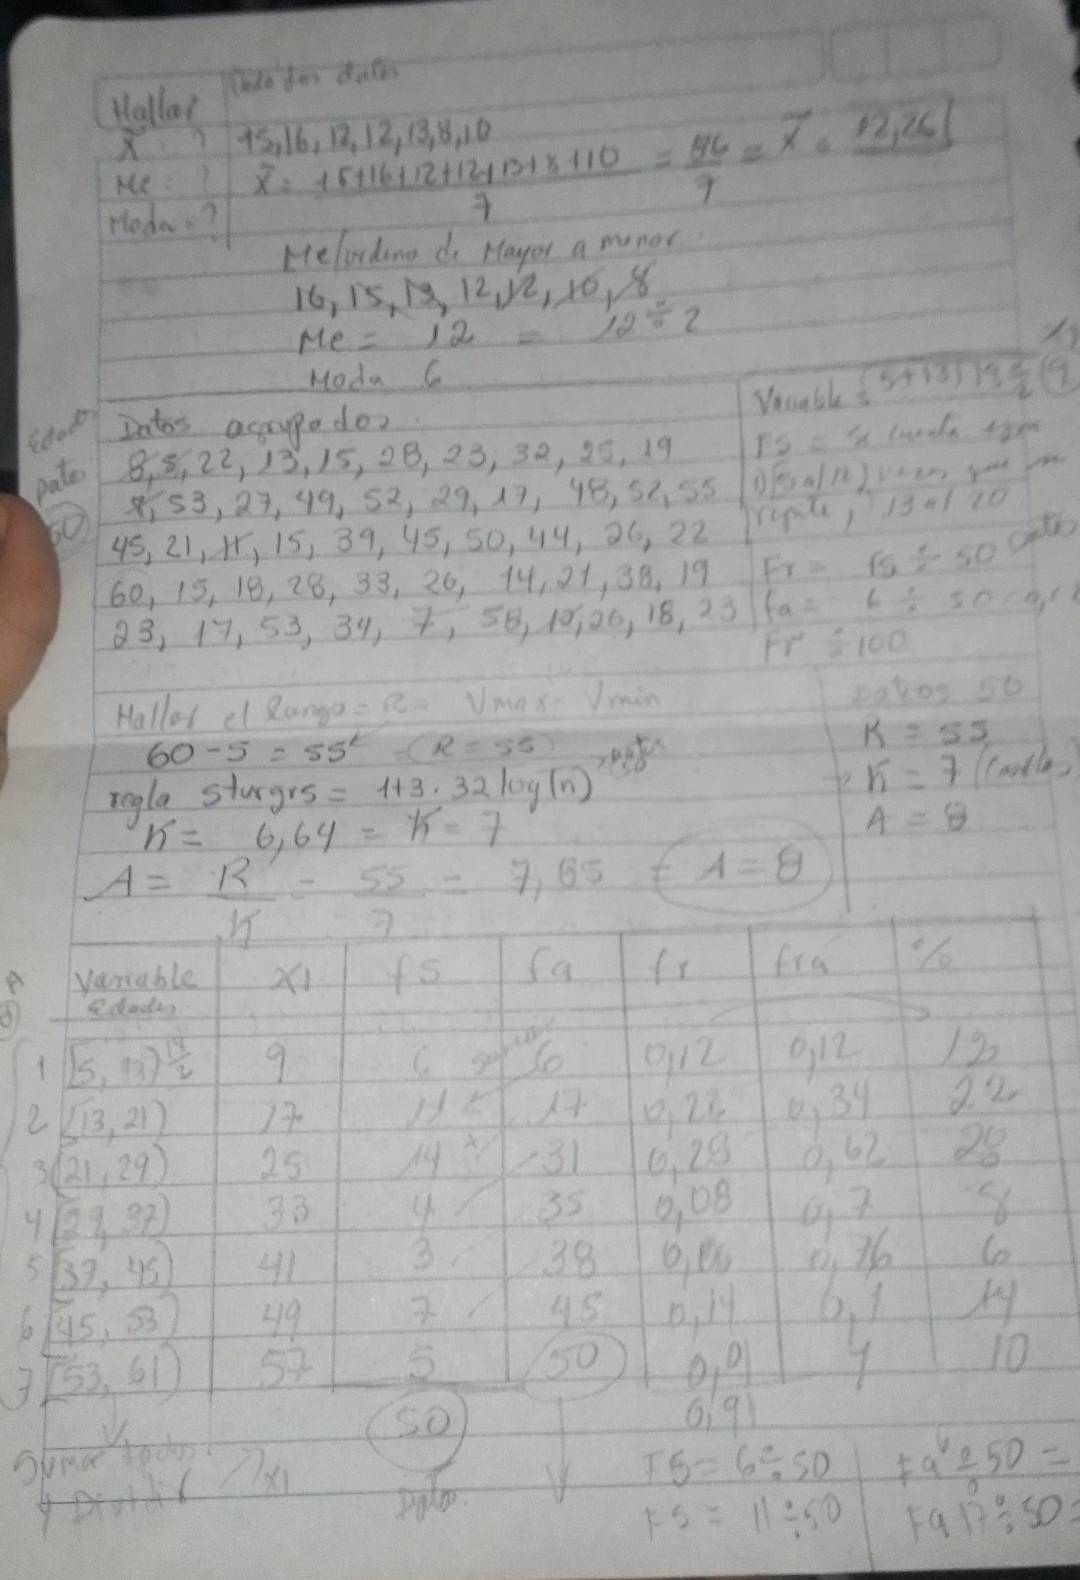 Hallar
Dado los datos
X̄ = ?
15, 16, 12, 12, 13, 8, 10
Me = ?
X̄ = 15+16+12+12+13+8+10 / 7 = 86 / 7 = X̄ = 12,26
Moda = ?
Me/ordeno de Mayor a menor
16, 15, 13, 12, 12, 10, 8
Me = 12 = 12 ÷ 2
Moda 6
Edad
Datos agrupados
Dato
50
8, 5, 22, 13, 15, 28, 23, 32, 25, 19
8, 53, 27, 49, 52, 29, 17, 48, 52, 55
45, 21, 11, 15, 39, 45, 50, 44, 26, 22
60, 15, 18, 28, 33, 26, 14, 21, 38, 19
23, 17, 53, 34, 7, 58, 10, 26, 18, 23
Variable = (5+13)
FS = Se cuenta
(5 al 12) veces que se
repite, 13 al 20
Fr = fs ÷ 50 Datos
fa = 6 ÷ 50 =
Fr ÷ 100
Hallar el Rango = R = Vmax - Vmin
60 - 5 = 55 (R = 55)
regla sturgrs = 1+3.32 log(n)
K = 6,64 = K = 7
A = R / K = 55 / 7 = 7,85 = A = 8
Datos 50
R = 55
K = 7
A = 8
Variable Edades X1 fs fa fr fra %
1 [5, 13) 9 6 6 0,12 0,12 12
2 [13, 21) 17 11 17 0,22 0,34 22
3 [21, 29) 25 14 31 0,28 0,62 28
4 [29, 37) 33 4 35 0,08 0,7 8
5 [37, 45) 41 3 38 0,06 0,76 6
6 [45, 53) 49 7 45 0,14 0,1 14
7 [53, 61) 57 5 50 0,01 1 10
50
0,91
Sumar todos
y Dividir
X1
Datos
FS = 6 ÷ 50
FS = 11 ÷ 50
Fa 6 ÷ 50 =
Fa 17 ÷ 50 =